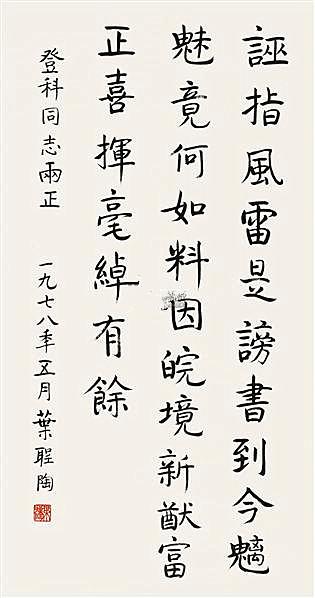 誣指風雷是謗書到今魑
魅竟何如料因皖境新猷富
正喜揮毫綽有餘
登科同志兩正
一九七八年五月葉聖陶